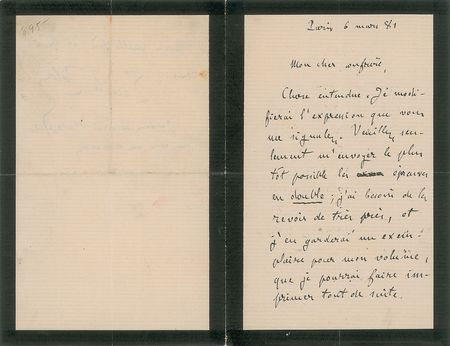 895
Paris 6 mars 81
Mon cher confrère,
Chose entendue. Je modi-
fierai l'expression que vous
me signalez. Veuillez seu-
lement m'envoyer le plus
tôt possible les épreuves
en double ; j'ai besoin de les
revoir de très près, et
j'en garderai un exem-
plaire pour mon volume,
que je pourrai faire im-
primer tout de suite.